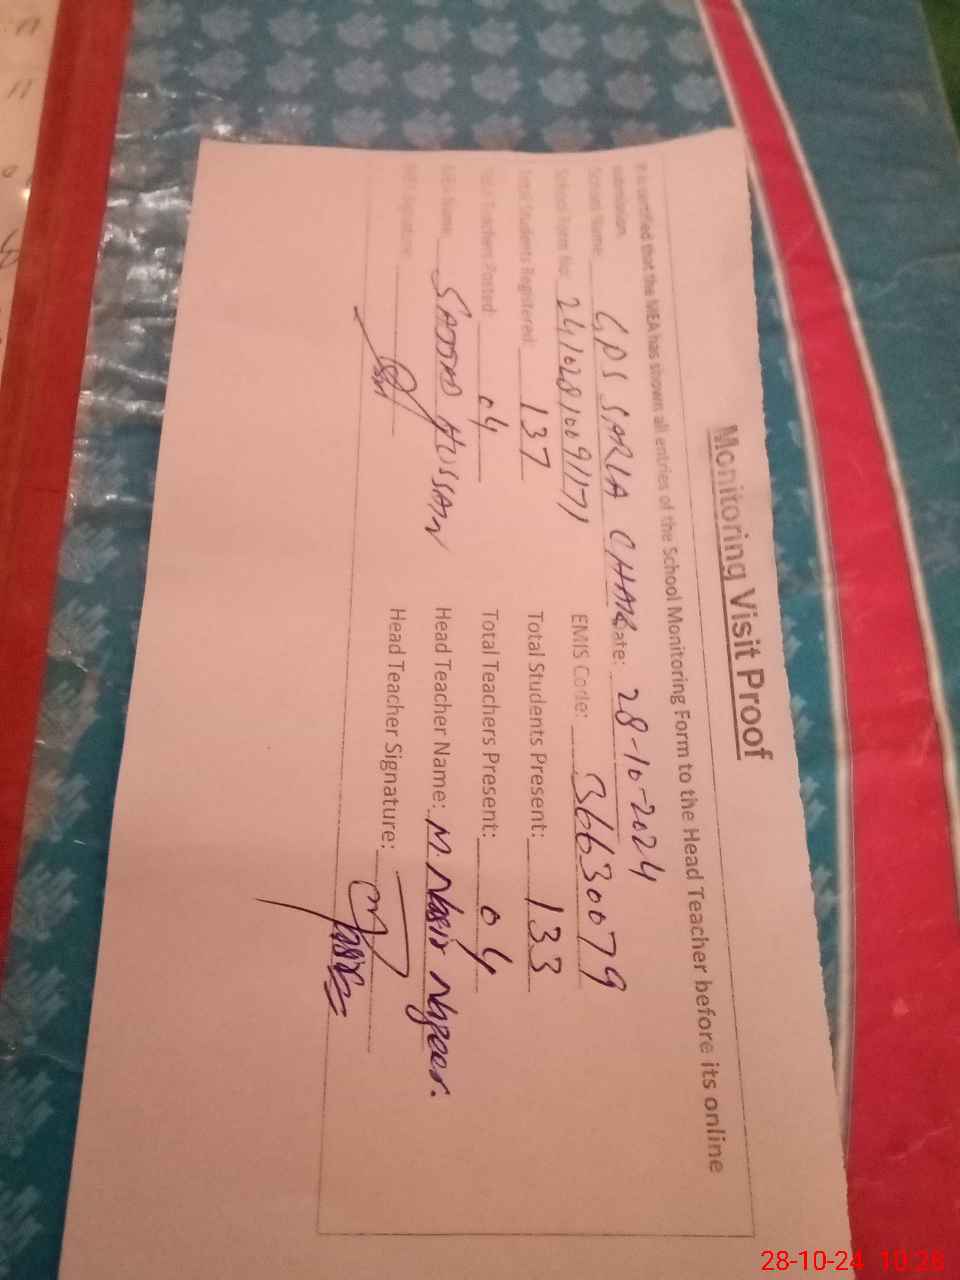 Monitoring Visit Proof
It is certified that the MEA has shown all entries of the School Monitoring Form to the Head Teacher before its online
submission.
School Name: GPS SARLA CHAK Date: 28-10-2024
School Form No: 24102810091171 EMIS Code: 36630079
Total Students Registered: 137 Total Students Present: 133
Total Teachers Posted: 04 Total Teachers Present: 04
MEA Name: SADDAD HUSSAIN Head Teacher Name: M. Nasir
MEA Signature: Head Teacher Signature:
28-10-24 10:28